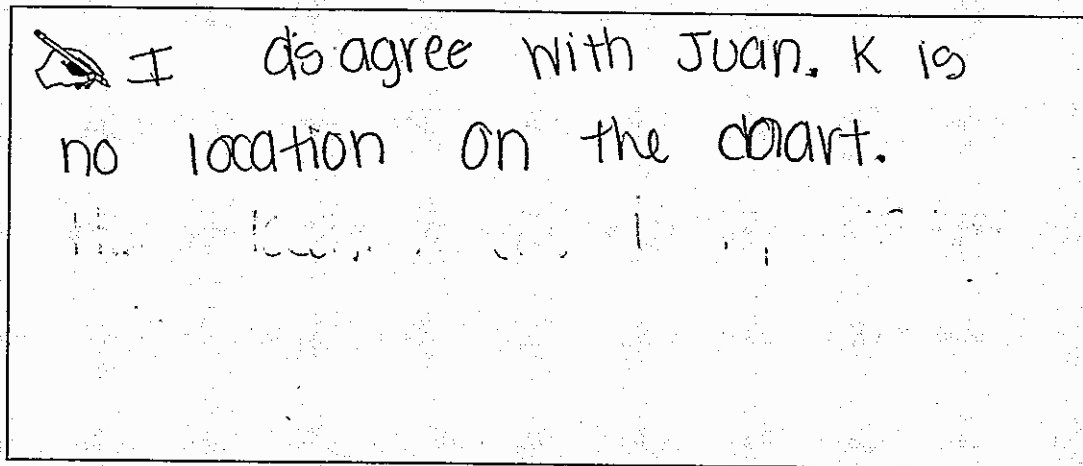 I disagree with Juan. K is
no location on the chart.